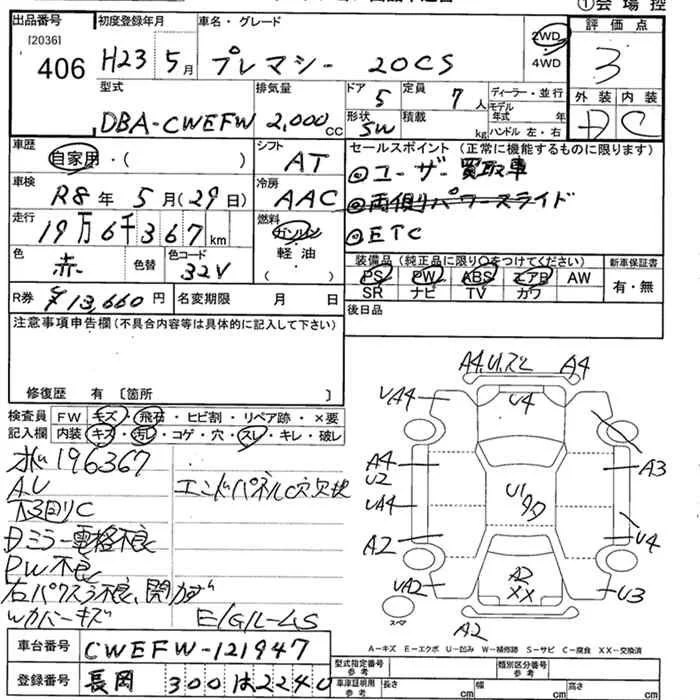 ①会場控
出品番号
[2036]
406
初度登録年月
H23 5月
車名・グレード
プレマシー 20CS
2WD
4WD
評価点
3
型式
DBA-CWEFW
排気量
2,000cc
ドア
5
定員
7人
形状
SW
積載
kg
ディーラー・並行
モデル年式 年
ハンドル 左・右
外装 内装
D C
車歴
自家用・( )
シフト
AT
セールスポイント (正常に機能するものに限ります)
◎ユーザー買取車
◎両側パワースライド
◎ETC
車検
R8年 5月(29日)
冷房
AAC
走行
19万6千367km
燃料
ガソリン
軽油
( )
色
赤
色替
色コード
32V
装備品 (純正品に限り○をつけてください)
PS PW ABS エアB AW
SR ナビ TV カワ
新車保証書
有・無
R券 ¥13,660円
名変期限 月 日
後日品
注意事項申告欄(不具合内容等は具体的に記入して下さい)
修復歴 有 〔箇所 〕
検査員記入欄
FW キズ・飛石・ヒビ割・リペア跡・×要
内装 キズ・汚レ・コゲ・穴・スレ・キレ・破レ
196367
A,U
下回りC
エンドパネルC穴欠状
Dミラー電格不良
PW不良
右パワスラ不良、開かず
Wカバーキズ
E/Gルームs
A4,U,ズレ A4
UA4 U4
A4 A3
U2
U1
UA4
A2 U4
UA2 A2 U3
XX
スペア
A2
A-キズ E-エクボ U-凹み W-補修跡 S-サビ C-腐食 XX-交換済
車台番号 CWEFW-121947
型式指定番号 参考
類別区分番号 参考
登録番号 長岡 300 は2240
車庫証明用 参考
長さ cm 幅 cm 高さ cm